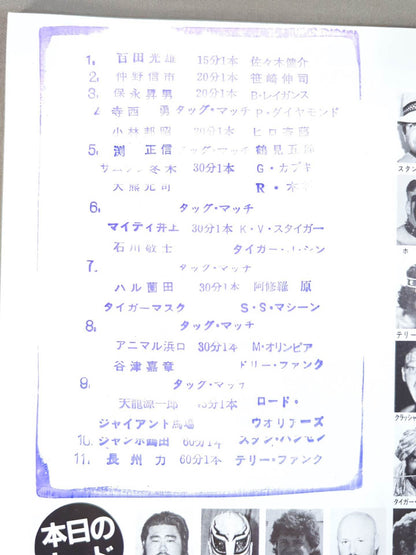 1, 百田光雄 15分1本 佐々木健介
2, 仲野信市 20分1本 笹崎伸司
3, 保永昇男 20分1本 B・レイガンス
4 寺西 勇 タッグ・マッチ P・ダイヤモンド
小林邦昭 20分1本 ヒロ斉藤
5, 渕 正信 タッグ・マッチ 鶴見五郎
サムソン冬木 30分1本 G・カブキ
大熊元司 R・
6, タッグ・マッチ
マイティ井上 30分1本 K・V・スタイガー
石川敬士 タイガー・
7, タッグ・マッチ
ハル薗田 30分1本 阿修羅 原
タイガーマスク S・S・マシーン
8, タッグ・マッチ
アニマル浜口 30分1本 M・オリンピア
谷津嘉章 ドリー・ファンク
9, タッグ・マッチ
天龍源一郎 分1本 ロード・
ジャイアント馬場 ウオリアーズ
10, ジャンボ鶴田 60分1本 スタン・ハンセン
11, 長州 力 60分1本 テリー・ファンク
スタン
ホ
テリー・
クラッシャ
タイガー・
本日の
カード